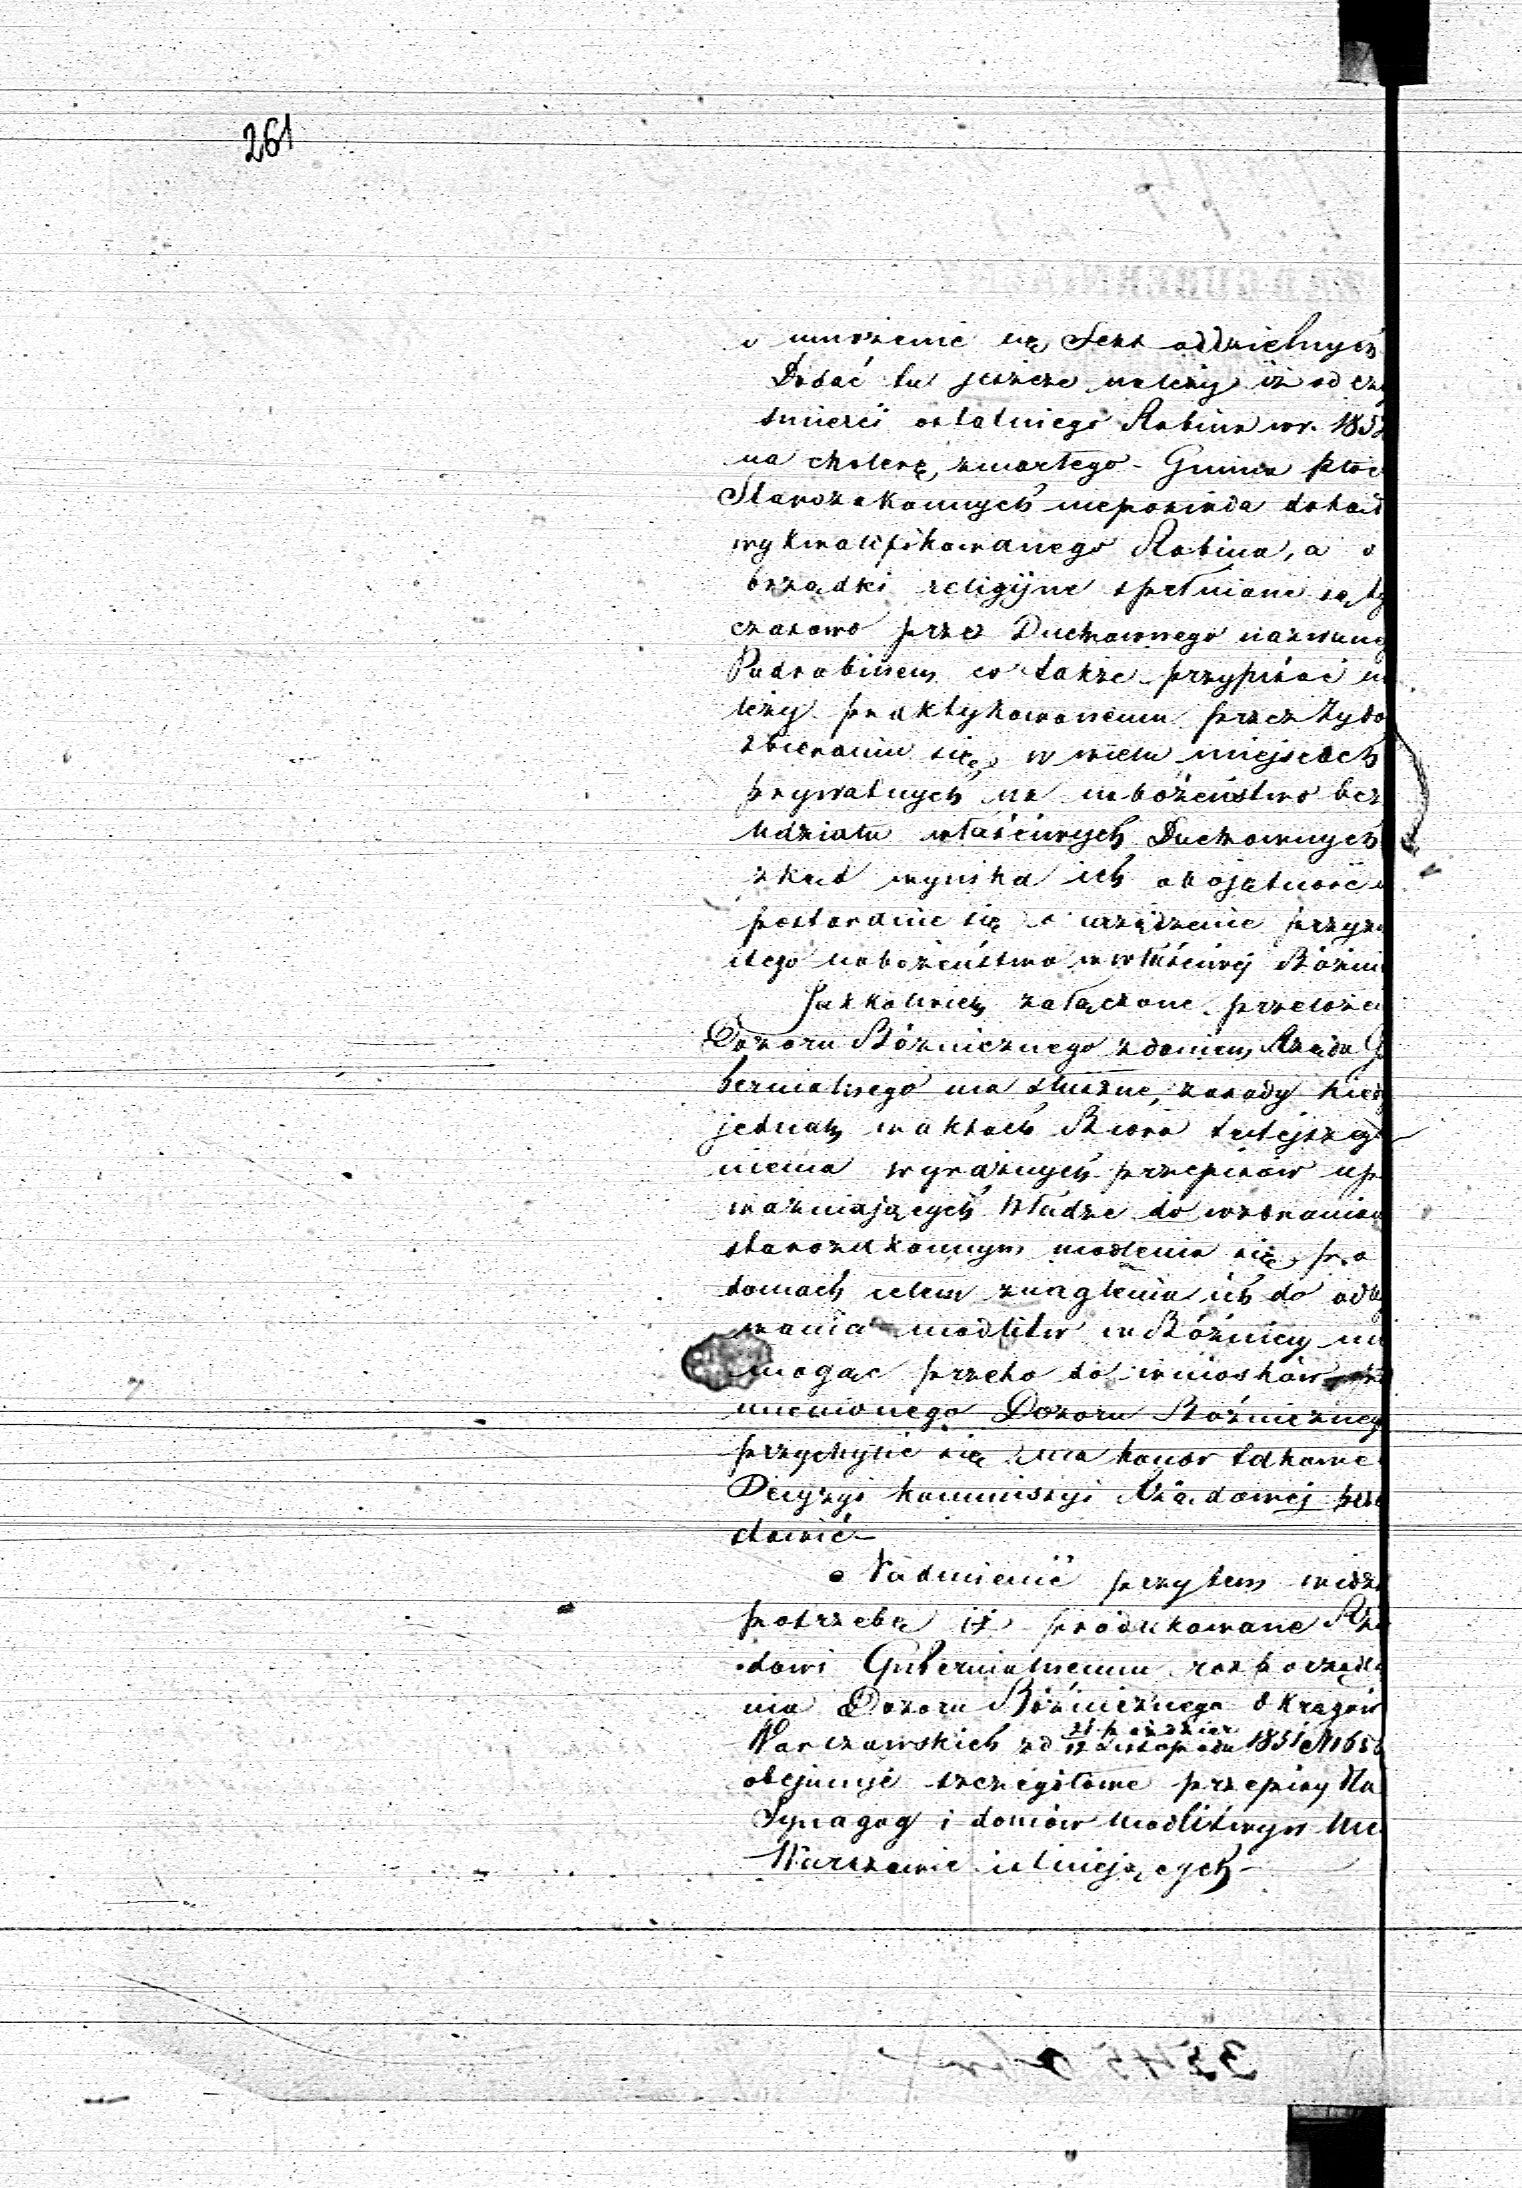 261
i mnożenie się Sekt oddzielnych
Dodać tu jeszcze należy iż od cza
śmierci ostatniego Rabina w r. 1852
na cholerę zmarłego - Gmina płoc
Starozakonnych nieposiada dotąd
wykwalifikowanego Rabina, a o
brządki religijne spełniane są ty
czasowo przez Duchownego nazwane
Podrabinem co także przypisać na
leży praktykowanemu przez Żydo
zbieraniu się w wielu miejscach
prywatnych na nabożeństwo bez
udziału właściwych Duchownych
zkąd wynika ich obojętność
postaranie się o urządzenie przyzw
itego nabożeństwa w właściwej Bóżni
Jakkolwiek załączone przełoże
Dozoru Bóżniczego zdaniem Rządu G
bernialnego ma słuszne zasady kiedy
jednak w aktach Biura tutejszego
niema wyraźnych przepisów up
ważniających Władze do wzbranian
starozakonnym modlenia się po
domach celem znaglenia ich do odby
wania modlitw w Bóżnicy nie
mogąc przeto do wniosków
mienionego Dozoru Bóżniczneg
przychylić się ma honor takowe
Decyzyi Kommissyi Rządowej prze
stawić
Nadmienić przytem widzi
potrzebę iż produkowane Rzą
dowi Gubernialnemu rozporządze
nia Dozoru Bóżnicznego Okręgów
Warszawskich zd 31 paździer 12 Listopada 1851 N 656
obejmuje szczegółowe przepisy dla
Synagog i domów modlitwy w
Warszawie istniejących
3545